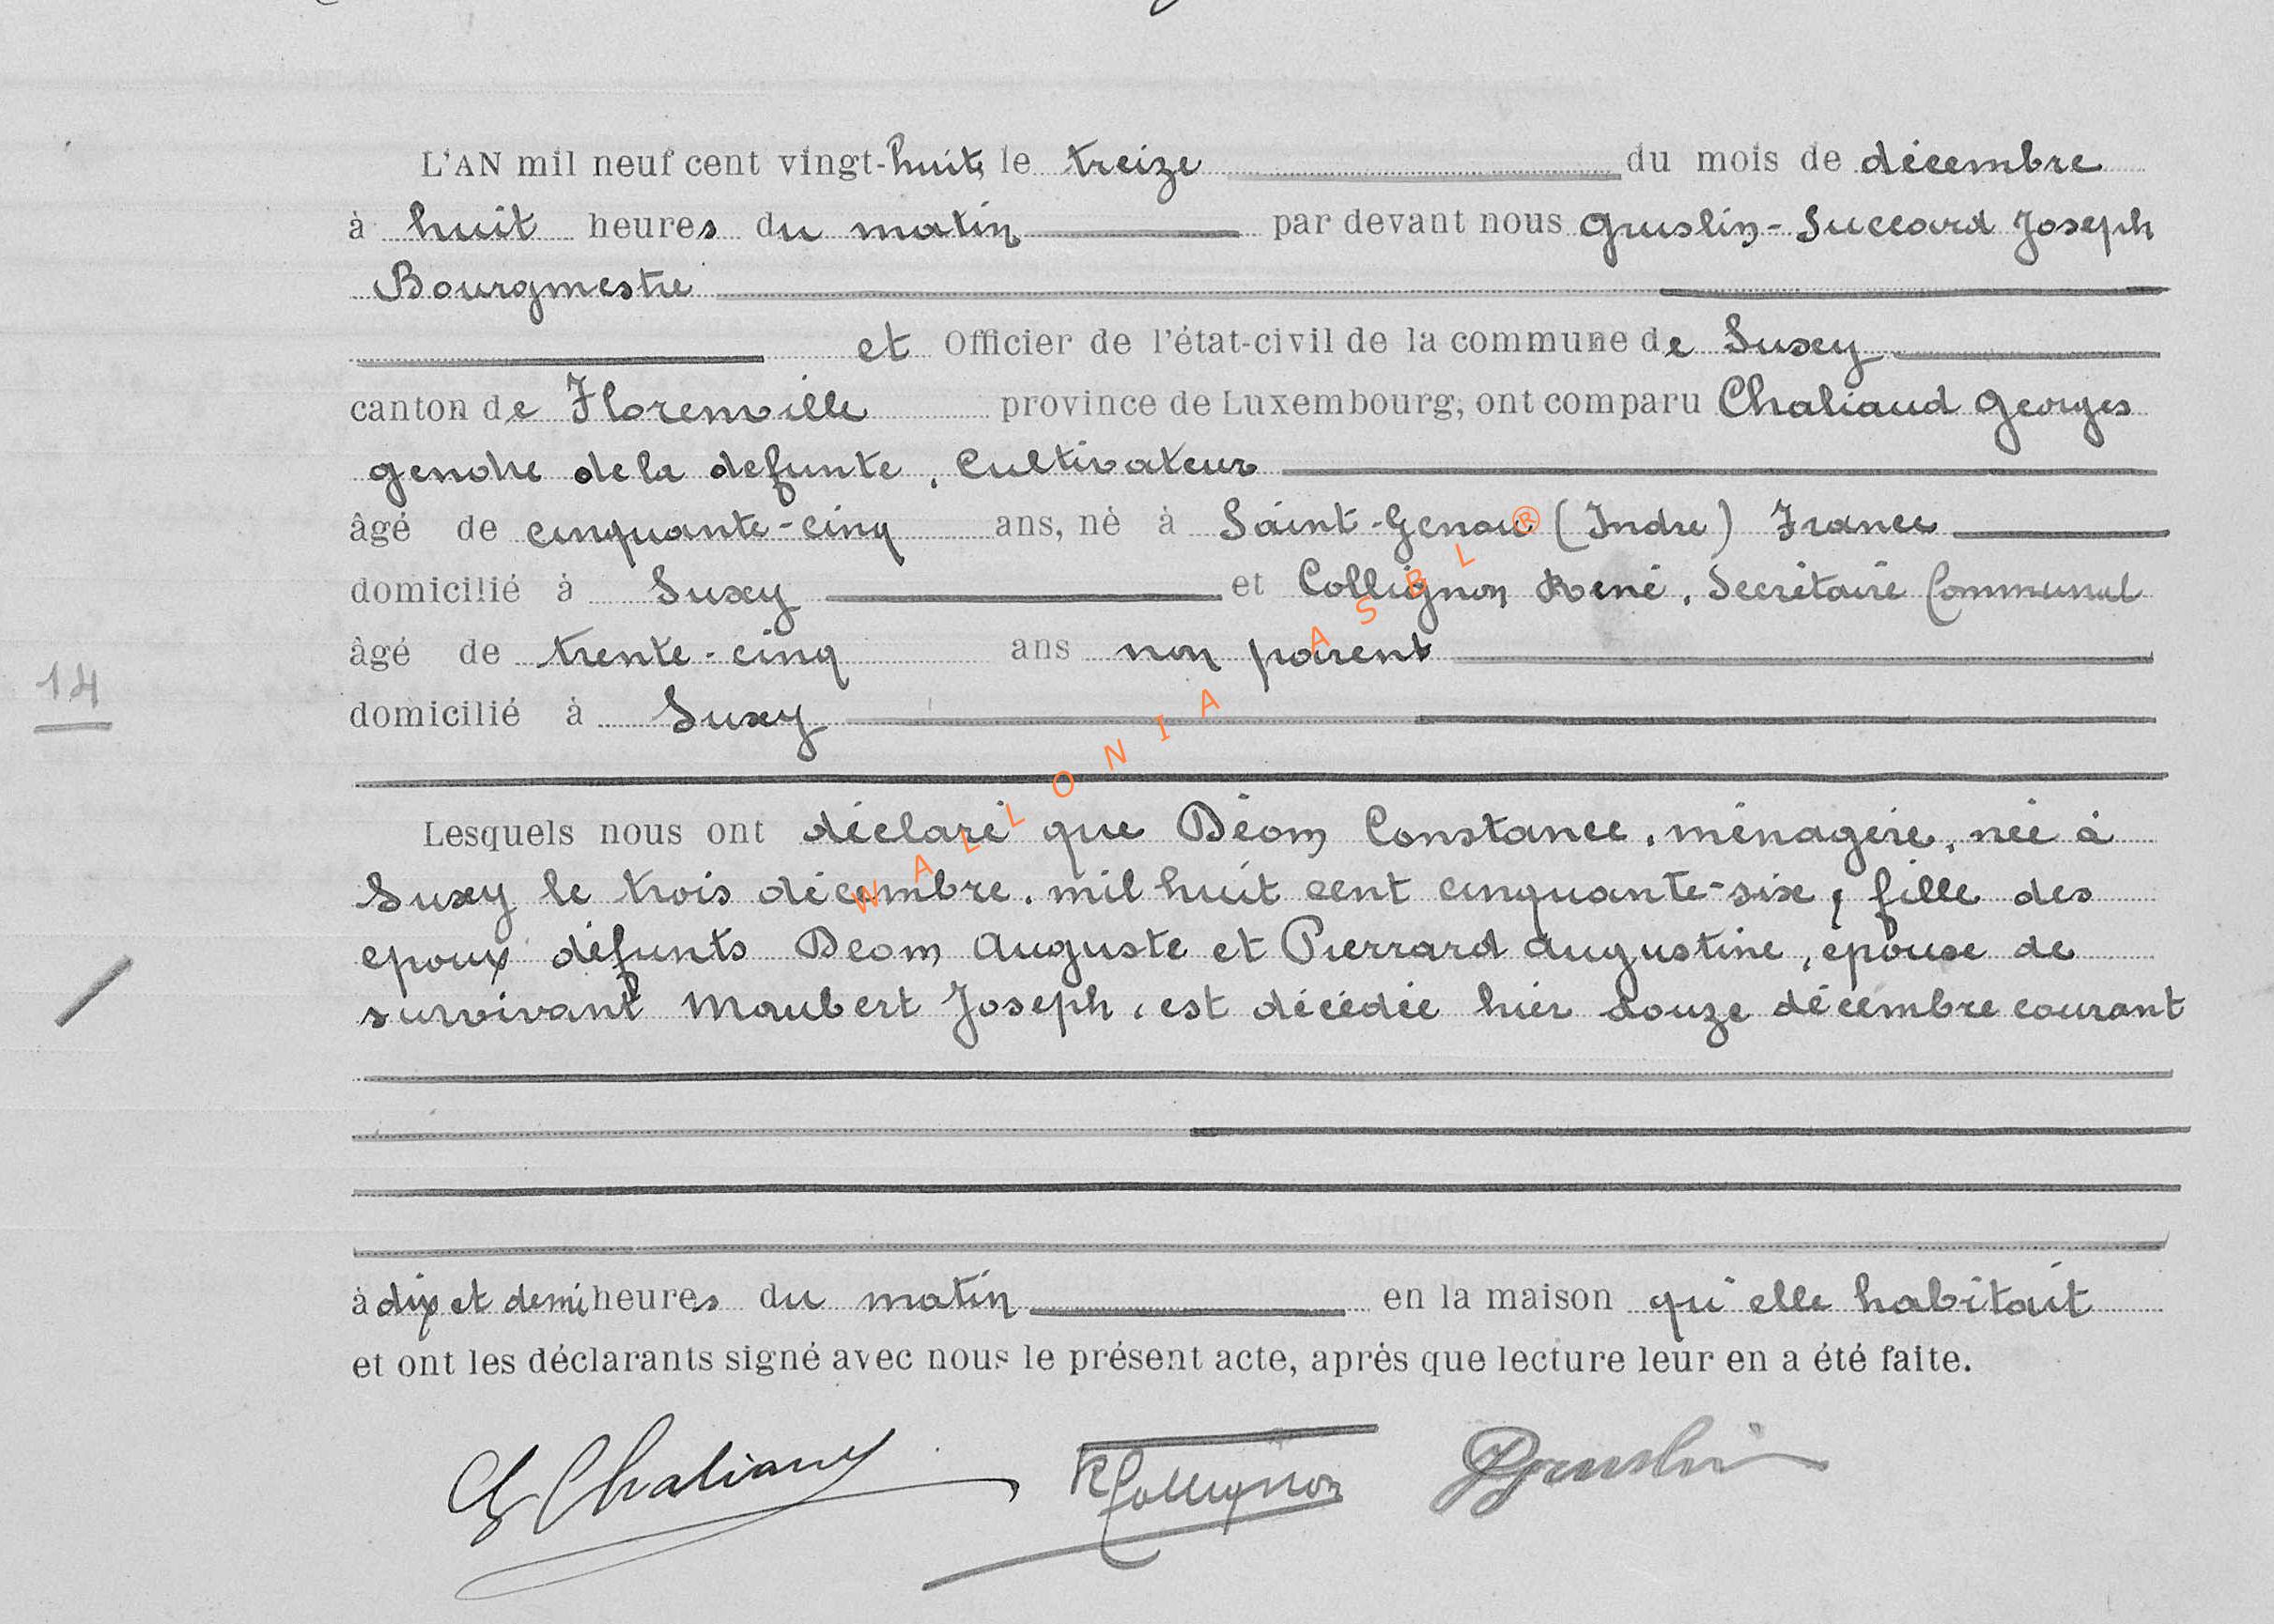 L'AN mil neuf cent vingt-huit, le treize du mois de décembre
à huit heures du matin par devant nous Gruslin-Succard Joseph
Bourgmestre
et Officier de l'état-civil de la commune de Suxy
canton de Florenville province de Luxembourg, ont comparu Chaliaud Georges
gendre de la defunte, Cultivateur
âgé de cinquante-cinq ans, né à Saint-Genou (Indre) France
domicilié à Suxy et Collignon René, Secrétaire Communal
âgé de trente-cinq ans non parent
14
domicilié à Suxy
Lesquels nous ont déclaré que Déom Constance, ménagère, née à
Suxy le trois décembre, mil huit cent cinquante-six, fille des
epoux défunts Deom Auguste et Pierrard Augustine, épouse de
survivant Maubert Joseph, est décédée hier douze décembre courant
à dix et demi heures du matin en la maison qu'elle habitait
et ont les déclarants signé avec nous le présent acte, après que lecture leur en a été faite.
G Chaliaud RCollignon JGruslin
WALLONIA ASBL ®